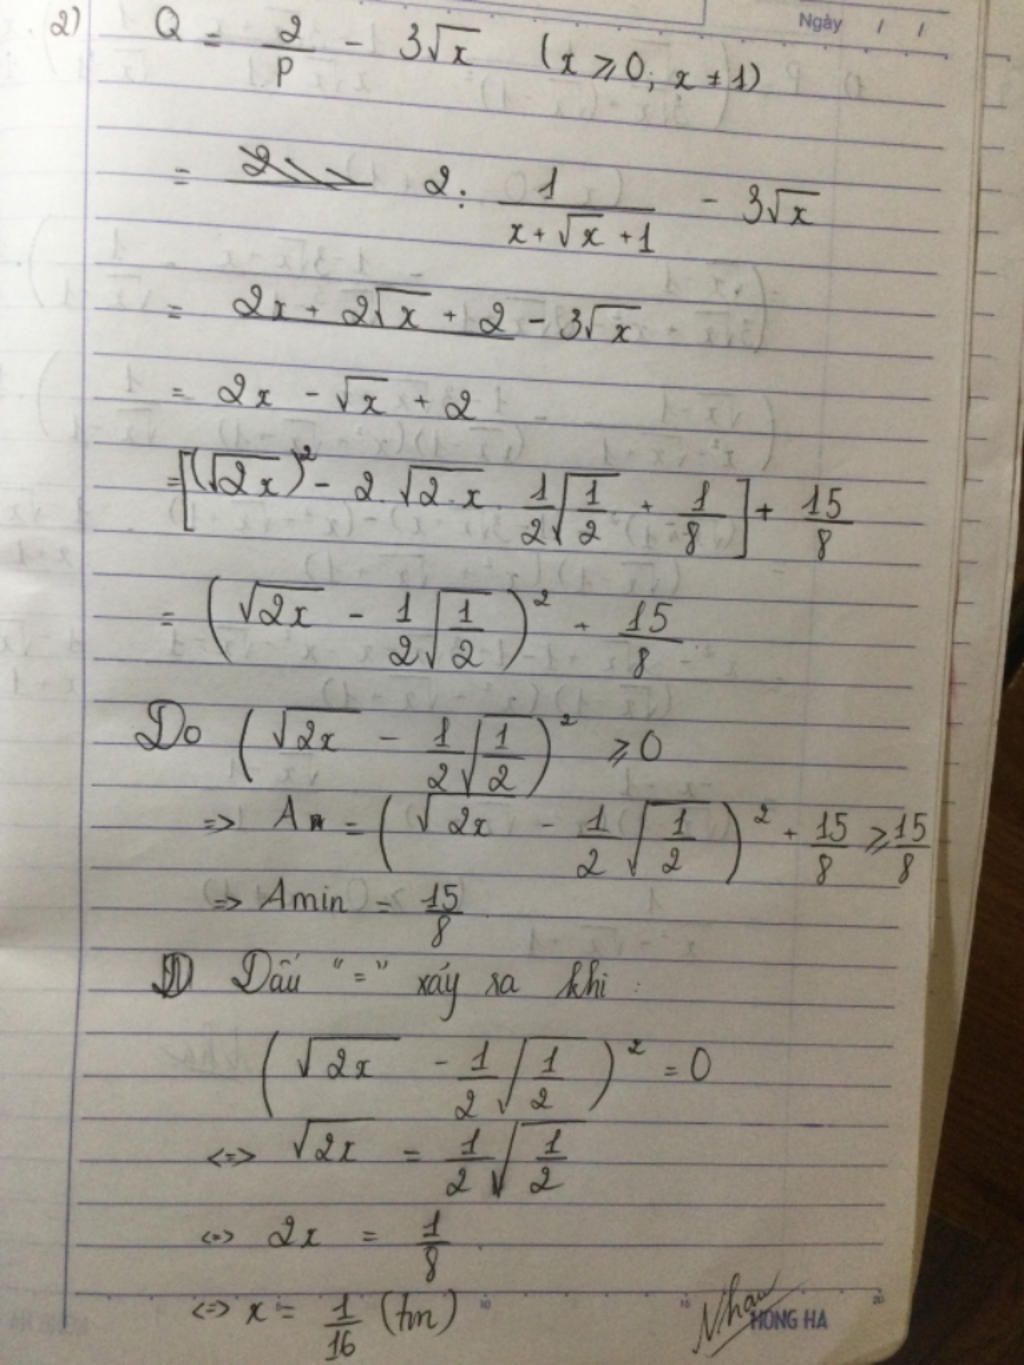 Ngày / /
2) Q = 2/P - 3√x (x ⩾ 0; x ≠ 1)
= 2 : 1/(x + √x + 1) - 3√x
= 2x + 2√x + 2 - 3√x
= 2x - √x + 2
= [(√2x)² - 2.√2.x 1/2 √(1/2) + 1/8] + 15/8
= (√2x - 1/2 √(1/2))² + 15/8
Do (√2x - 1/2 √(1/2))² ⩾ 0
=> A = (√2x - 1/2 √(1/2))² + 15/8 ⩾ 15/8
=> Amin = 15/8
Dấu "=" xảy ra khi :
(√2x - 1/2 √(1/2))² = 0
<=> √2x = 1/2 √(1/2)
<=> 2x = 1/8
<=> x = 1/16 (tm)
Nhaw
HONG HA